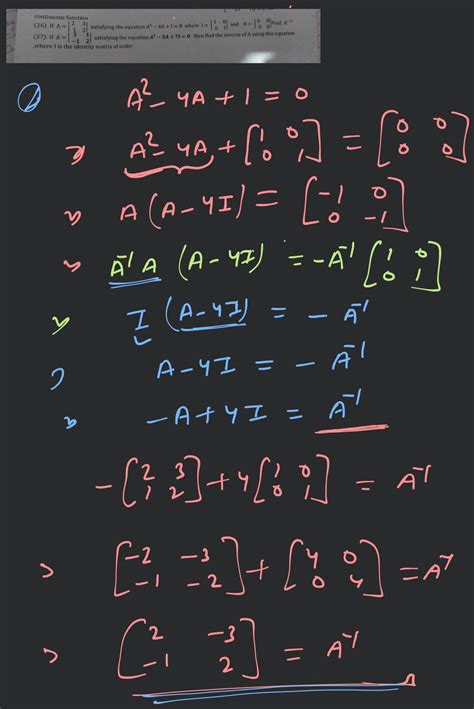 continuous function
(26) If A = [2 3 1 2] satisfying the equation A² - 4A + I = 0 where I = [1 0 0 1] and 0 = [0 0 0 0] Find A⁻¹
(27) If A = [3 1 -1 2] satisfying the equation A² - 5A + 7I = 0 then find the inverse of A using this equation
,where I is the identity matrix of order
A² - 4A + 1 = 0
A² - 4A + [1 0 0 1] = [0 0 0 0]
A (A - 4I) = [-1 0 0 -1]
A⁻¹ A (A - 4I) = -A⁻¹ [1 0 0 1]
I (A - 4I) = - A⁻¹
A - 4I = - A⁻¹
-A + 4I = A⁻¹
-[2 3 1 2] + 4[1 0 0 1] = A⁻¹
[-2 -3 -1 -2] + [4 0 0 4] = A⁻¹
[2 -3 -1 2] = A⁻¹